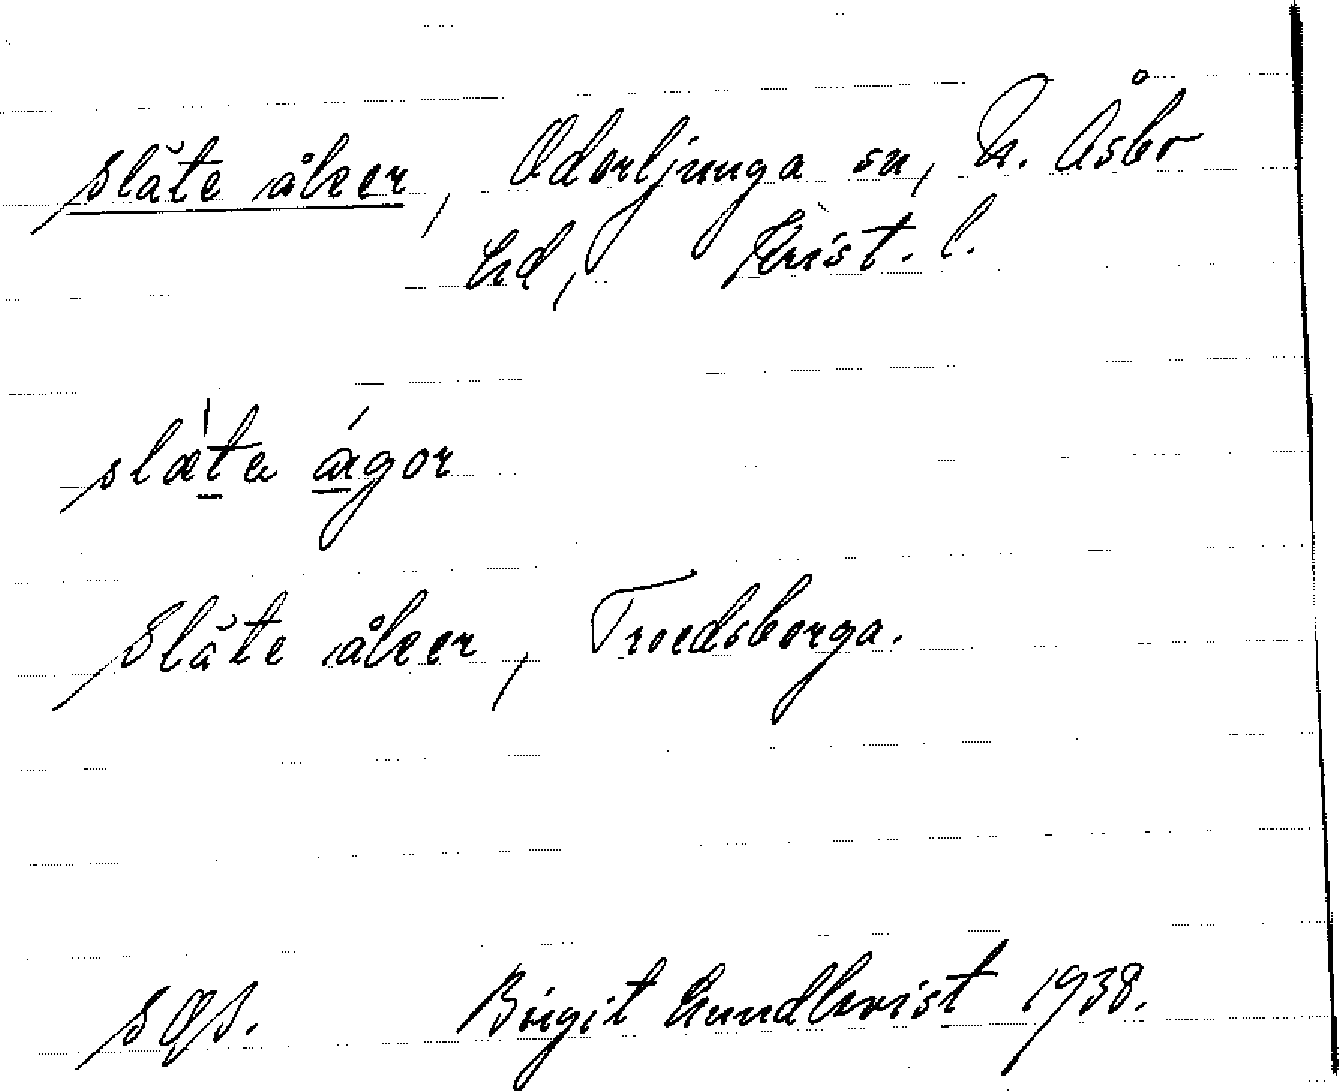 släte åker, Oderljunga sn, N. Åsbo
hd, Krist. l.
slæta ågor
Släte åker, Troedsborga.
Birgit Lundkvist 1938.